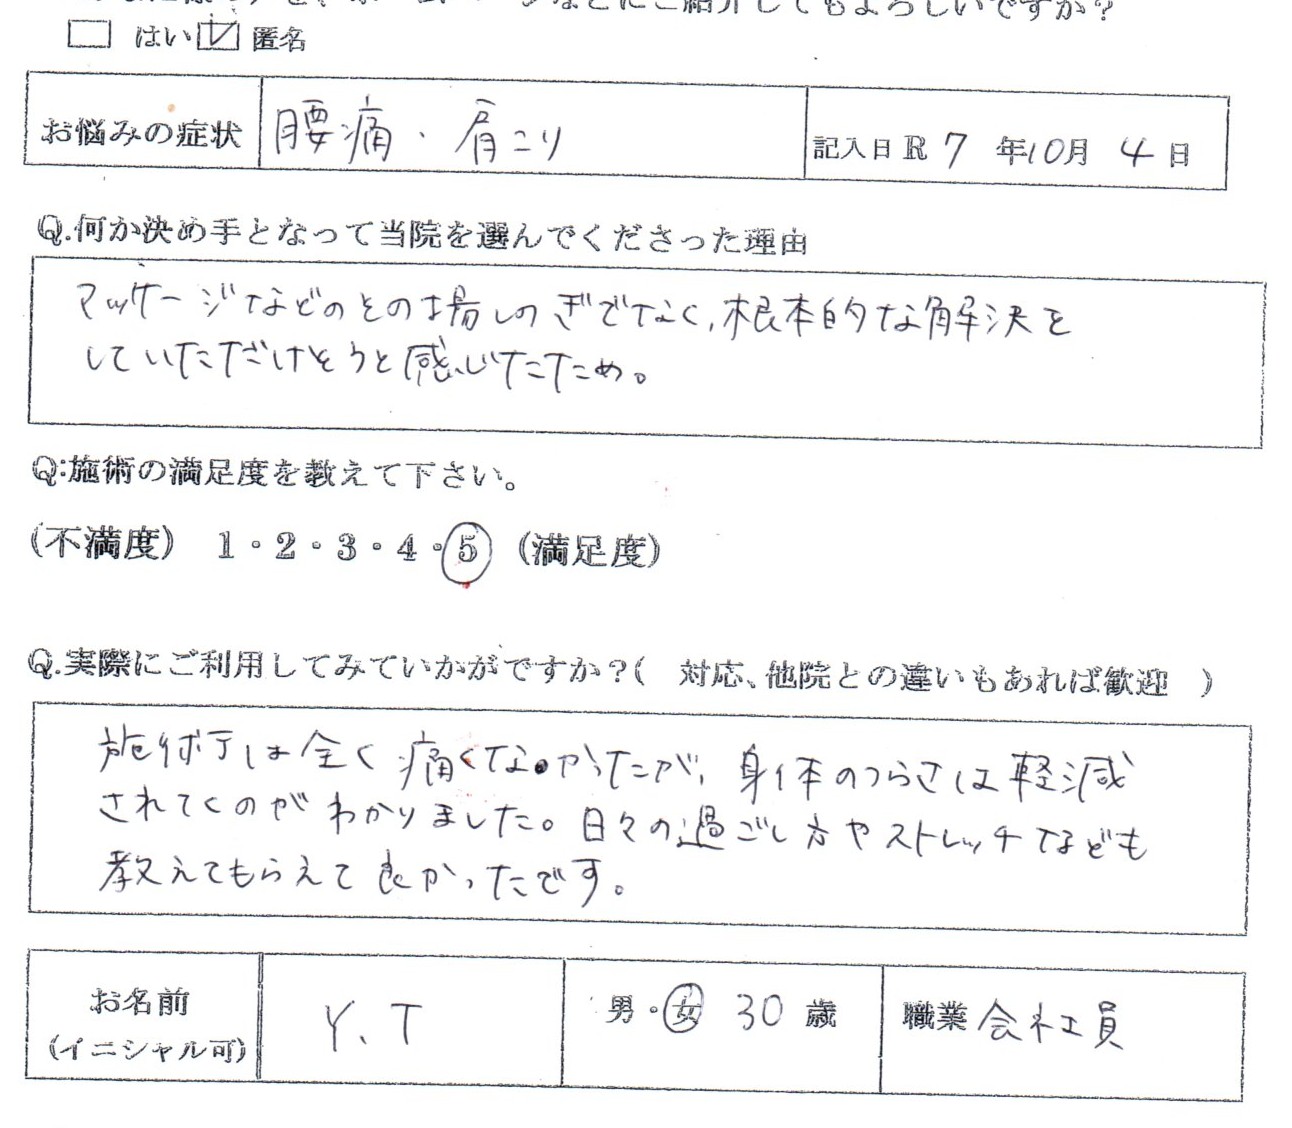 ご紹介してもよろしいですか?
□ はい ☑ 匿名
お悩みの症状 腰痛・肩こり 記入日 R 7 年10月 4 日
Q.何か決め手となって当院を選んでくださった理由
マッサージなどのその場しのぎでなく、根本的な解決を
していただけそうと感じたため。
Q:施術の満足度を教えて下さい。
(不満度) 1・2・3・4・5 (満足度)
Q.実際にご利用してみていかがですか?( 対応、他院との違いもあれば歓迎 )
施術は全く痛くなかったが、身体のつらさは軽減
されてくのがわかりました。日々の過ごし方やストレッチなども
教えてもらえて良かったです。
お名前 Y.T 男・女 30 歳 職業 会社員
(イニシャル可)